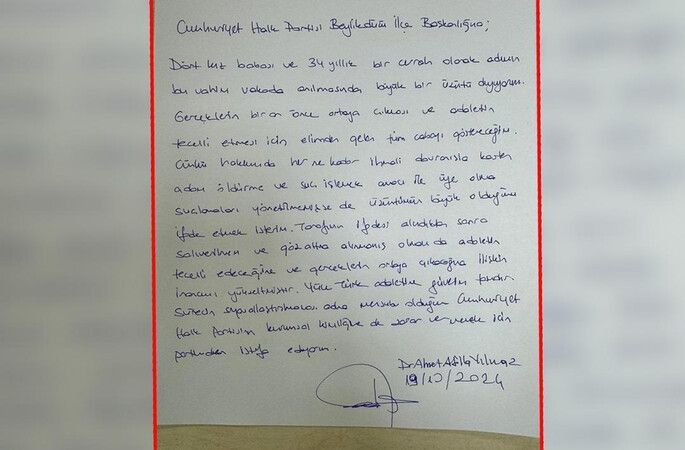 Cumhuriyet Halk Partisi Beylikdüzü İlçe Başkanlığına;
Dört kız babası ve 34 yıllık bir cerrah olarak adımın
bu vahim vakada anılmasından büyük bir üzüntü duyuyorum.
Gerçeklerin bir an önce ortaya çıkması ve adaletin
tecelli etmesi için elimden gelen tüm çabayı göstereceğim.
Çünkü hakkımda her ne kadar ihmali davranışla kasten
adam öldürme ve suç işlemek amacı ile üye olma
suçlamaları yöneltilmemişse de üzüntümün büyük olduğunu
ifade etmek isterim. Tarafımın ifadesi alındıktan sonra
salıverilmem ve gözaltına alınmamış olmam da adaletin
tecelli edeceğine ve gerçeklerin ortaya çıkacağına ilişkin
inancımı yükseltmiştir. Yüce Türk adaletine güvenim tamdır.
Sürecin siyasallaştırılmaması adına mensubu olduğum Cumhuriyet
Halk Partisinin kurumsal kimliğine de zarar vermemek için
partimden istifa ediyorum.
Dr Ahmet Atilla Yılmaz
19/10/2024